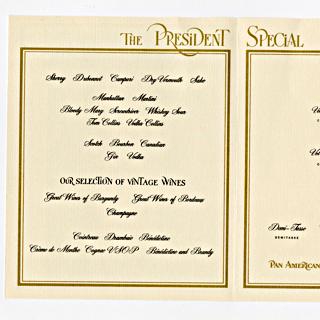 The President Special
Sherry Dubonnet Campari Dry Vermouth Sake
Manhattan Martini
Bloody Mary Screwdriver Whiskey Sour
Tom Collins Vodka Collins
Scotch Bourbon Canadian
Gin Vodka
OUR SELECTION OF VINTAGE WINES
Great Wines of Burgundy Great Wines of Bordeaux
Champagne
Cointreau Drambuie Bénédictine
Crème de Menthe Cognac V.S.O.P. Bénédictine and Brandy
Demi-Tasse
DEMITASSE
PAN AMERICAN